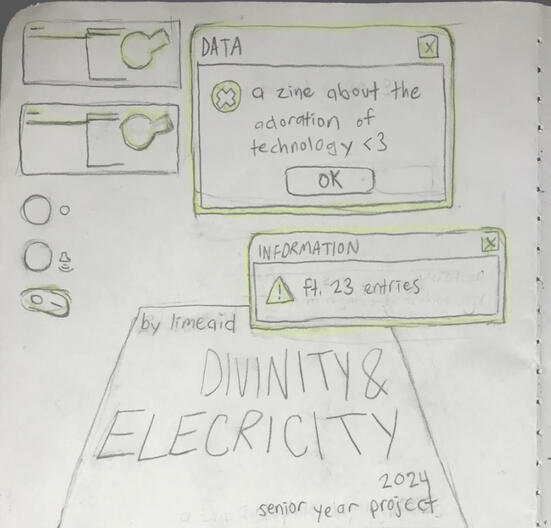 DATA
X
a zine about the
adoration of
technology <3
OK
INFORMATION
X
ft. 23 entries
by limeaid
DIVINITY &
ELECRICITY
2024
senior year project